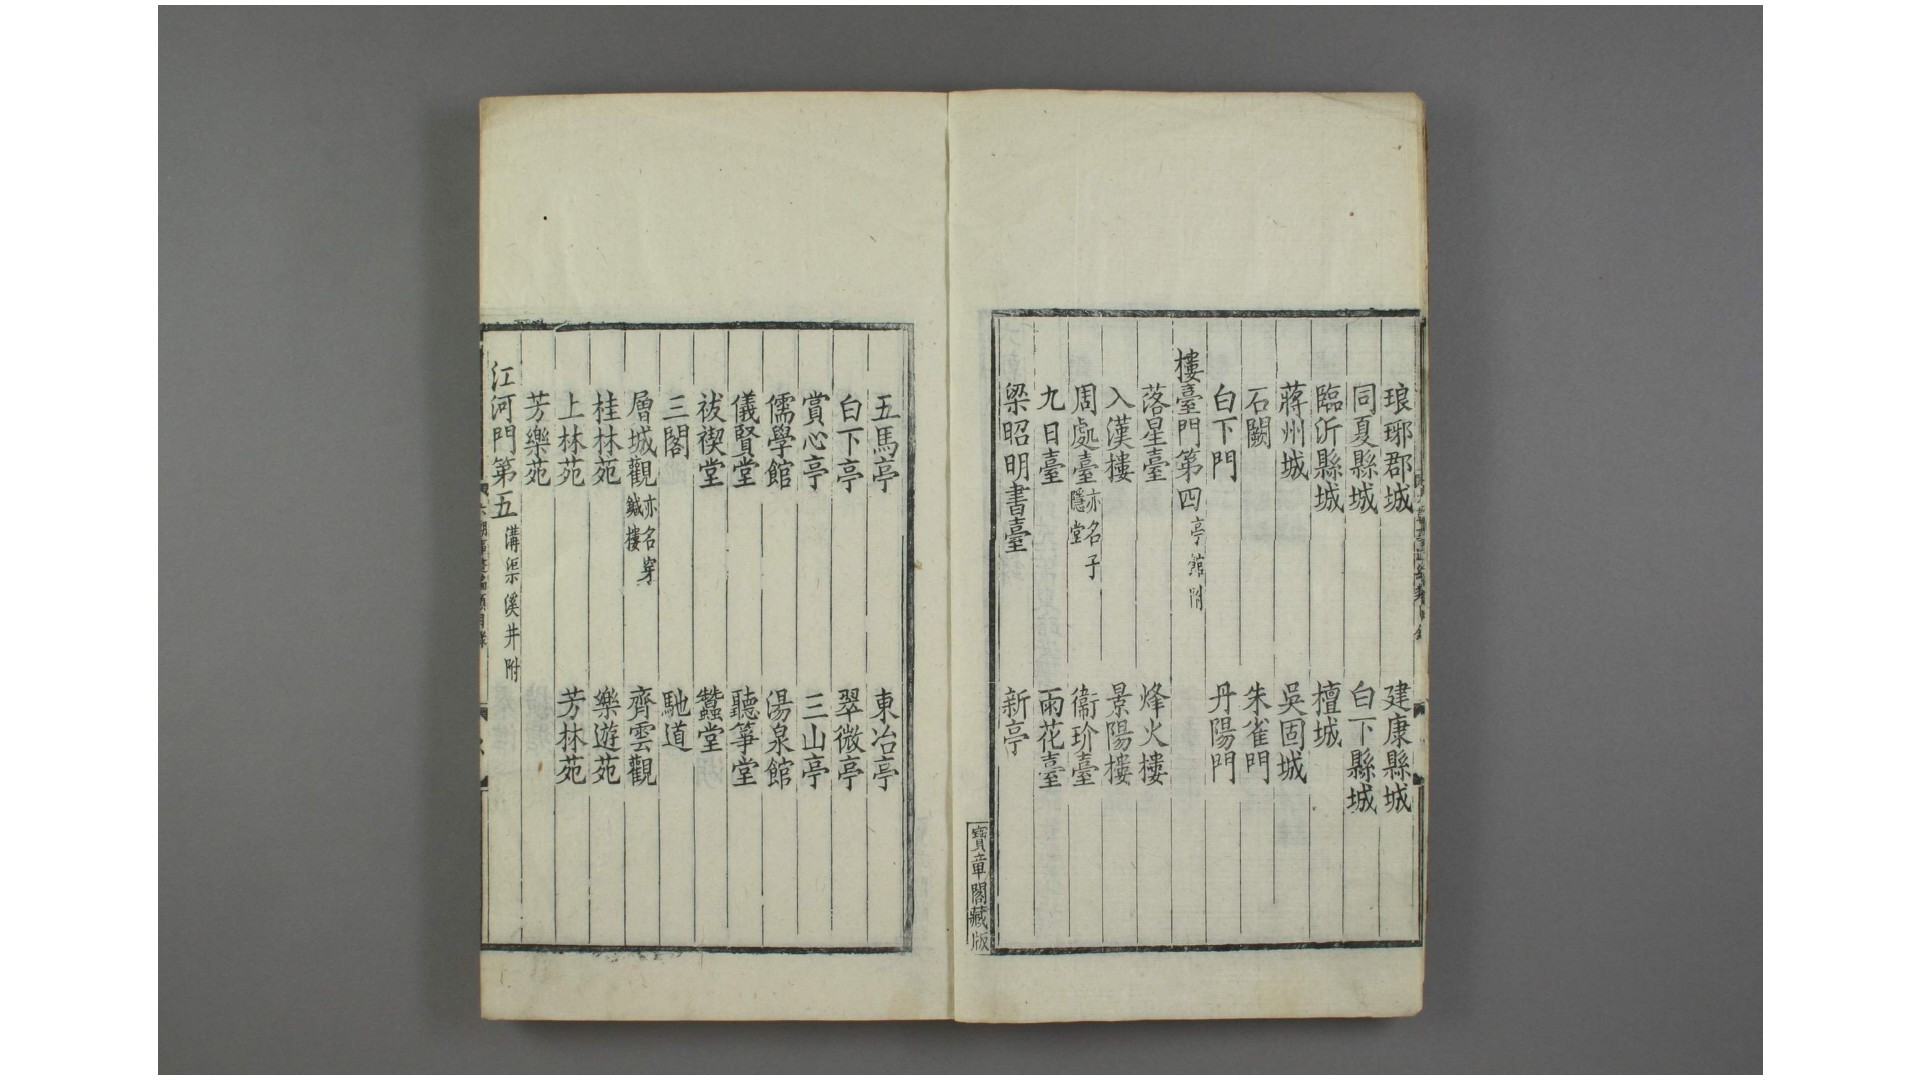 琅琊郡城　建康縣城
同夏縣城　白下縣城
臨沂縣城　檀城
蔣州城　吳固城
石闕　朱雀門
白下門　丹陽門
樓臺門第四 亭館附
落星臺　烽火樓
入漢樓　景陽樓
周處臺 亦名子隱堂　衞玠臺
九日臺　雨花臺
梁昭明書臺　新亭
寶章閣藏版
五馬亭　東冶亭
白下亭　翠微亭
賞心亭　三山亭
儒學館　湯泉館
儀賢堂　聽箏堂
祓禊堂　蠶堂
三閣　馳道
層城觀 亦名穿鍼樓　齊雲觀
桂林苑　樂遊苑
上林苑　芳林苑
芳樂苑
江河門第五 溝渠溪井附